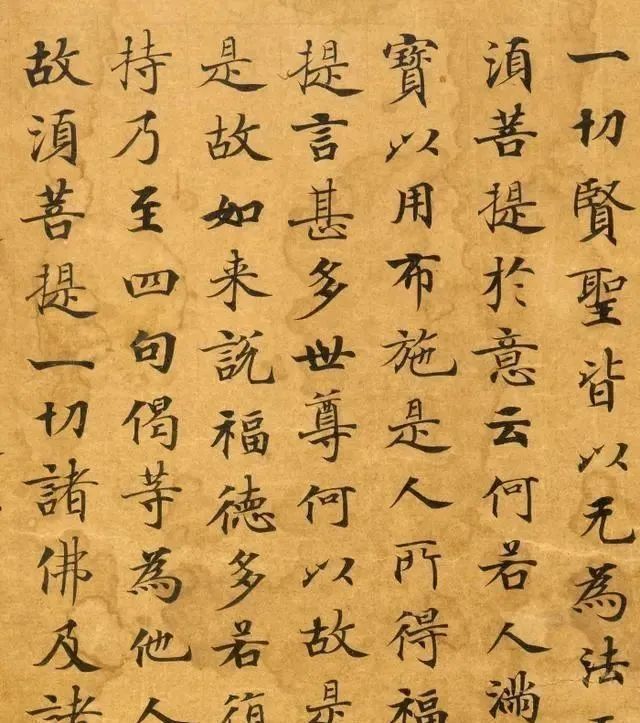 一切賢聖皆以无為法
須菩提於意云何若人滿
寶以用布施是人所得福
提言甚多世尊何以故是
是故如来說福德多若復
持乃至四句偈等為他人
故須菩提一切諸佛及諸